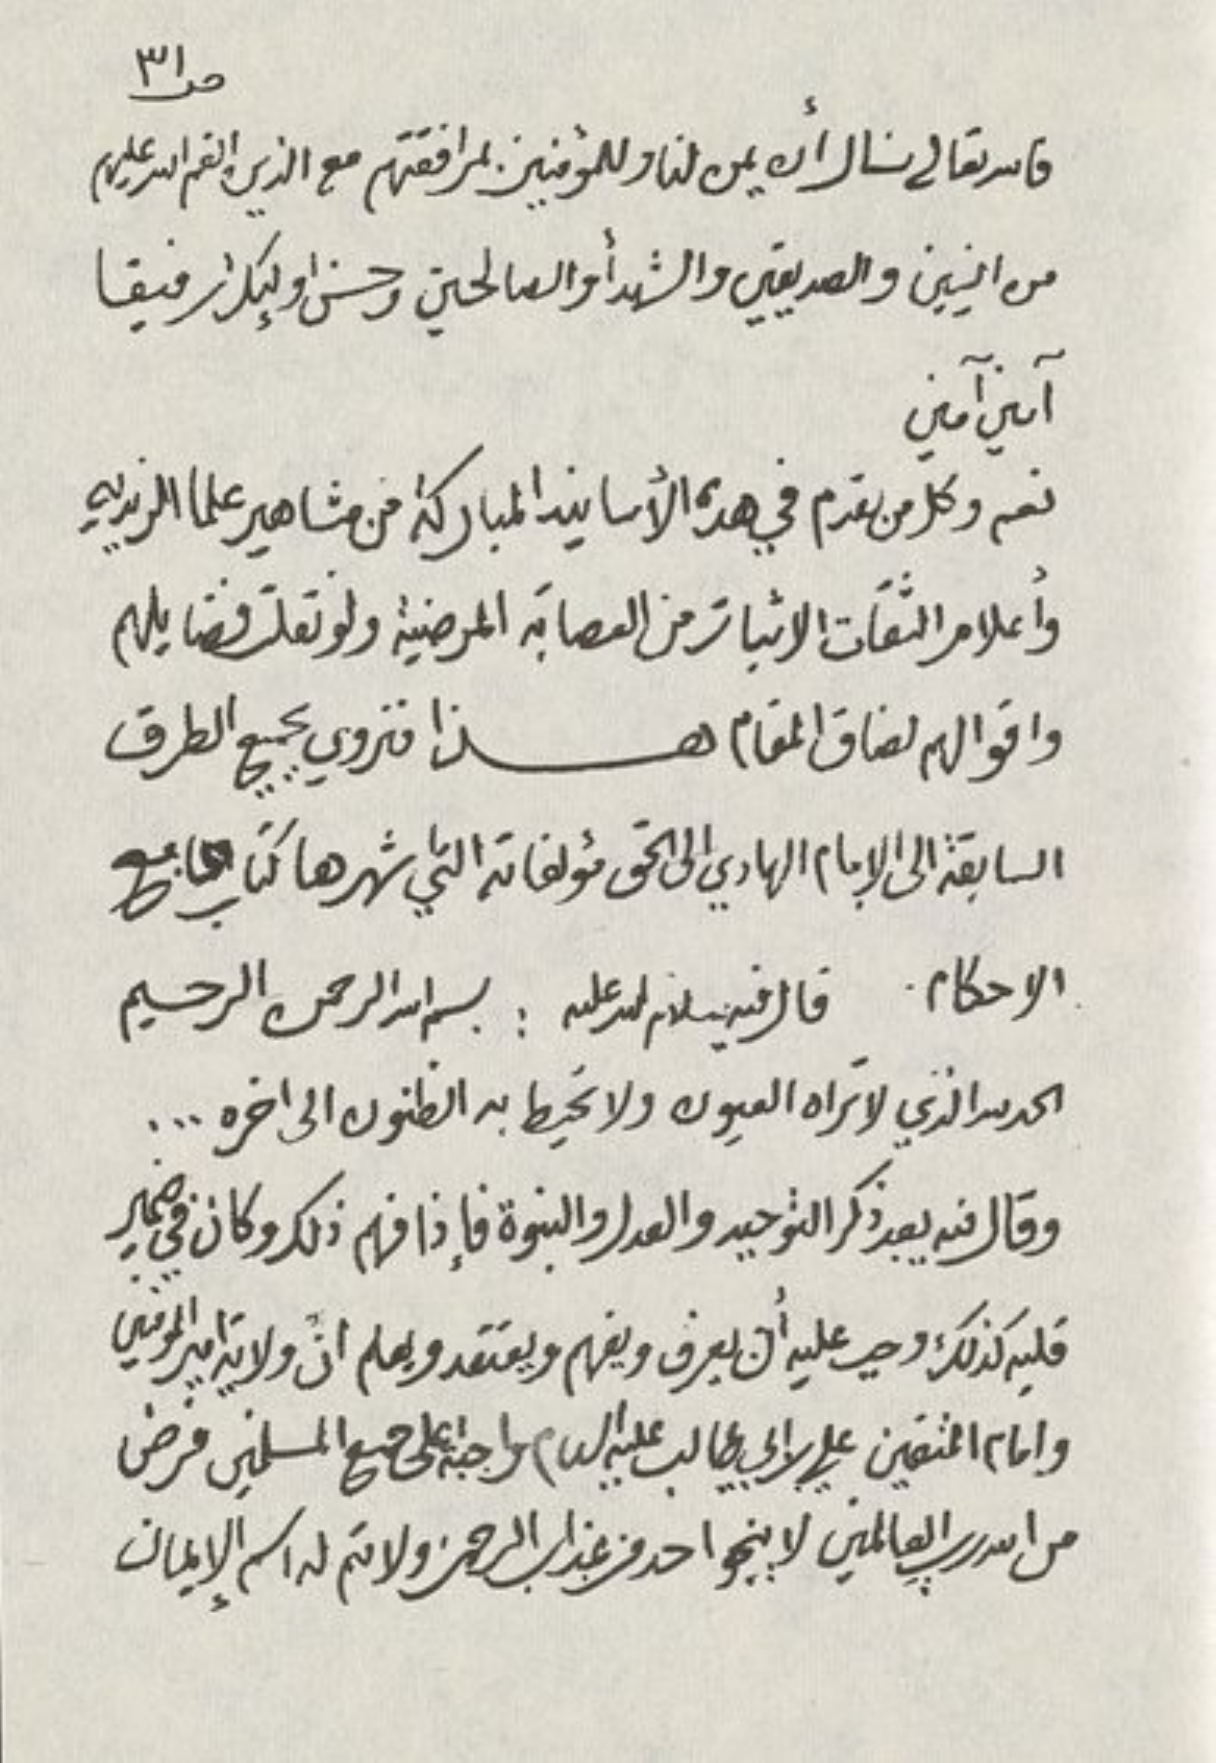 ص٣١
فالله تعالى نسال أن يمن لنا وللمؤمنين بمرافقتهم مع الذين انعم الله عليهم
من النبيين والصديقين والشهدأ والصالحين وحسن اوليك رفيقا
آمين آمين
نعم وكل من تقدم في هذه الأسانيد المباركة من مشاهير علما الزيديه
وأعلام الثقات الاثبات من العصابة المرضية ولو نقلت فضايلهم
واقوالهم لضاق المقام هــذا فنروي بجميع الطرق
السابقة الى الإمام الهادي الى الحق مؤلفاته التي أشهرها كتاب جامع
الاحكام . قال فيه سلام الله عليه : بسم الله الرحمن الرحيم
الحمد لله الذي لا تراه العيون ولا تحيط به الظنون الى اخره ...
وقال فيه بعد ذكر التوحيد والعدل والنبوة فإذا فهم ذلك وكان في ضمير
قلبه كذلك وجب عليه أن يعرف ويفهم ويعتقد ويعلم انّ ولاية امير المؤمنين
وإمام المتقين علي بن ابي طالب عليه السلام واجبة على جميع المسلمين فرض
من الله رب العالمين لا ينجوا احد من عذاب الرحمن ولا يتم له اسم الإيمان